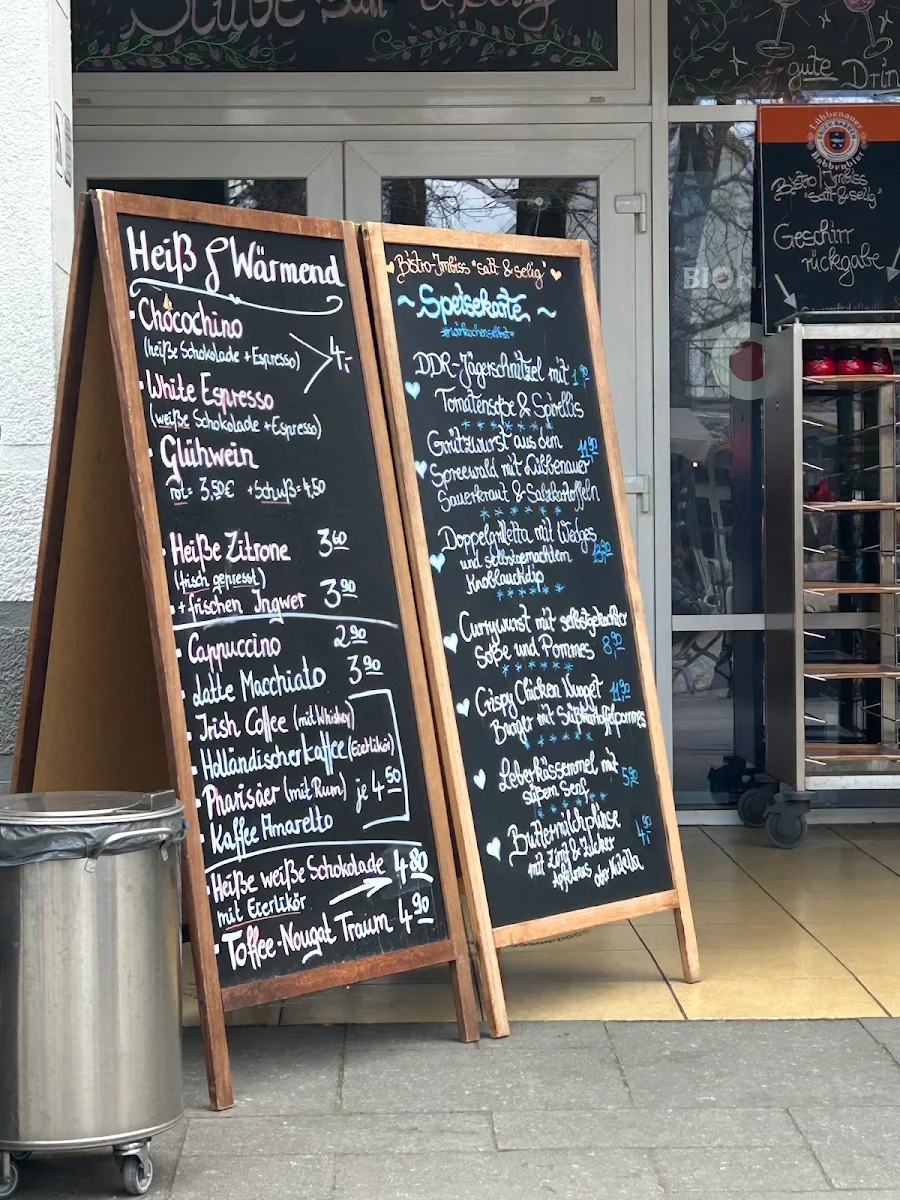 Stube "satt & selig"
gute Drin
Heiß & Wärmend
Chocochino
(heiße Schokolade + Espresso)
4,-
White Espresso
(weiße Schokolade + Espresso)
Glühwein
rot = 3,50€ + Schuß = 4,50
Heiße Zitrone 3 60
(frisch gepresst)
+ frischen Ingwer 3 90
Cappuccino 2 90
Latte Macchiato 3 90
Irish Coffee (mit Whiskey)
Holländischer Kaffee (Eierlikör)
Pharisäer (mit Rum) je 4 50
Kaffee Amaretto
Heiße weiße Schokolade 4 80
mit Eierlikör
Toffee-Nougat Traum 4 90
Bistro-Imbiss "satt & selig"
~ Speisekarte ~
#wirkochenselbst
DDR-Jägerschnitzel mit
Tomatensoße & Spirellis
Grützwurst aus dem 11,90
Spreewald mit Lübbenauer
Sauerkraut & Salzkartoffeln
Doppelgrilletta mit Wedges
und selbstgemachtem
Knoblauchdip
Currywurst mit selbstgekochter
Soße und Pommes 8,90
Crispy Chicken Nugget 11,90
Burger mit Süßkartoffelpommes
Leberkässemmel mit 5,90
süßem Senf
Buttermilchplinse
mit Zimt & Zucker
Apfelmus oder Nutella
Lübbenauer
Babbenbier
Bistro/Imbiss
"satt & selig"
Geschirr
rückgabe
BIO